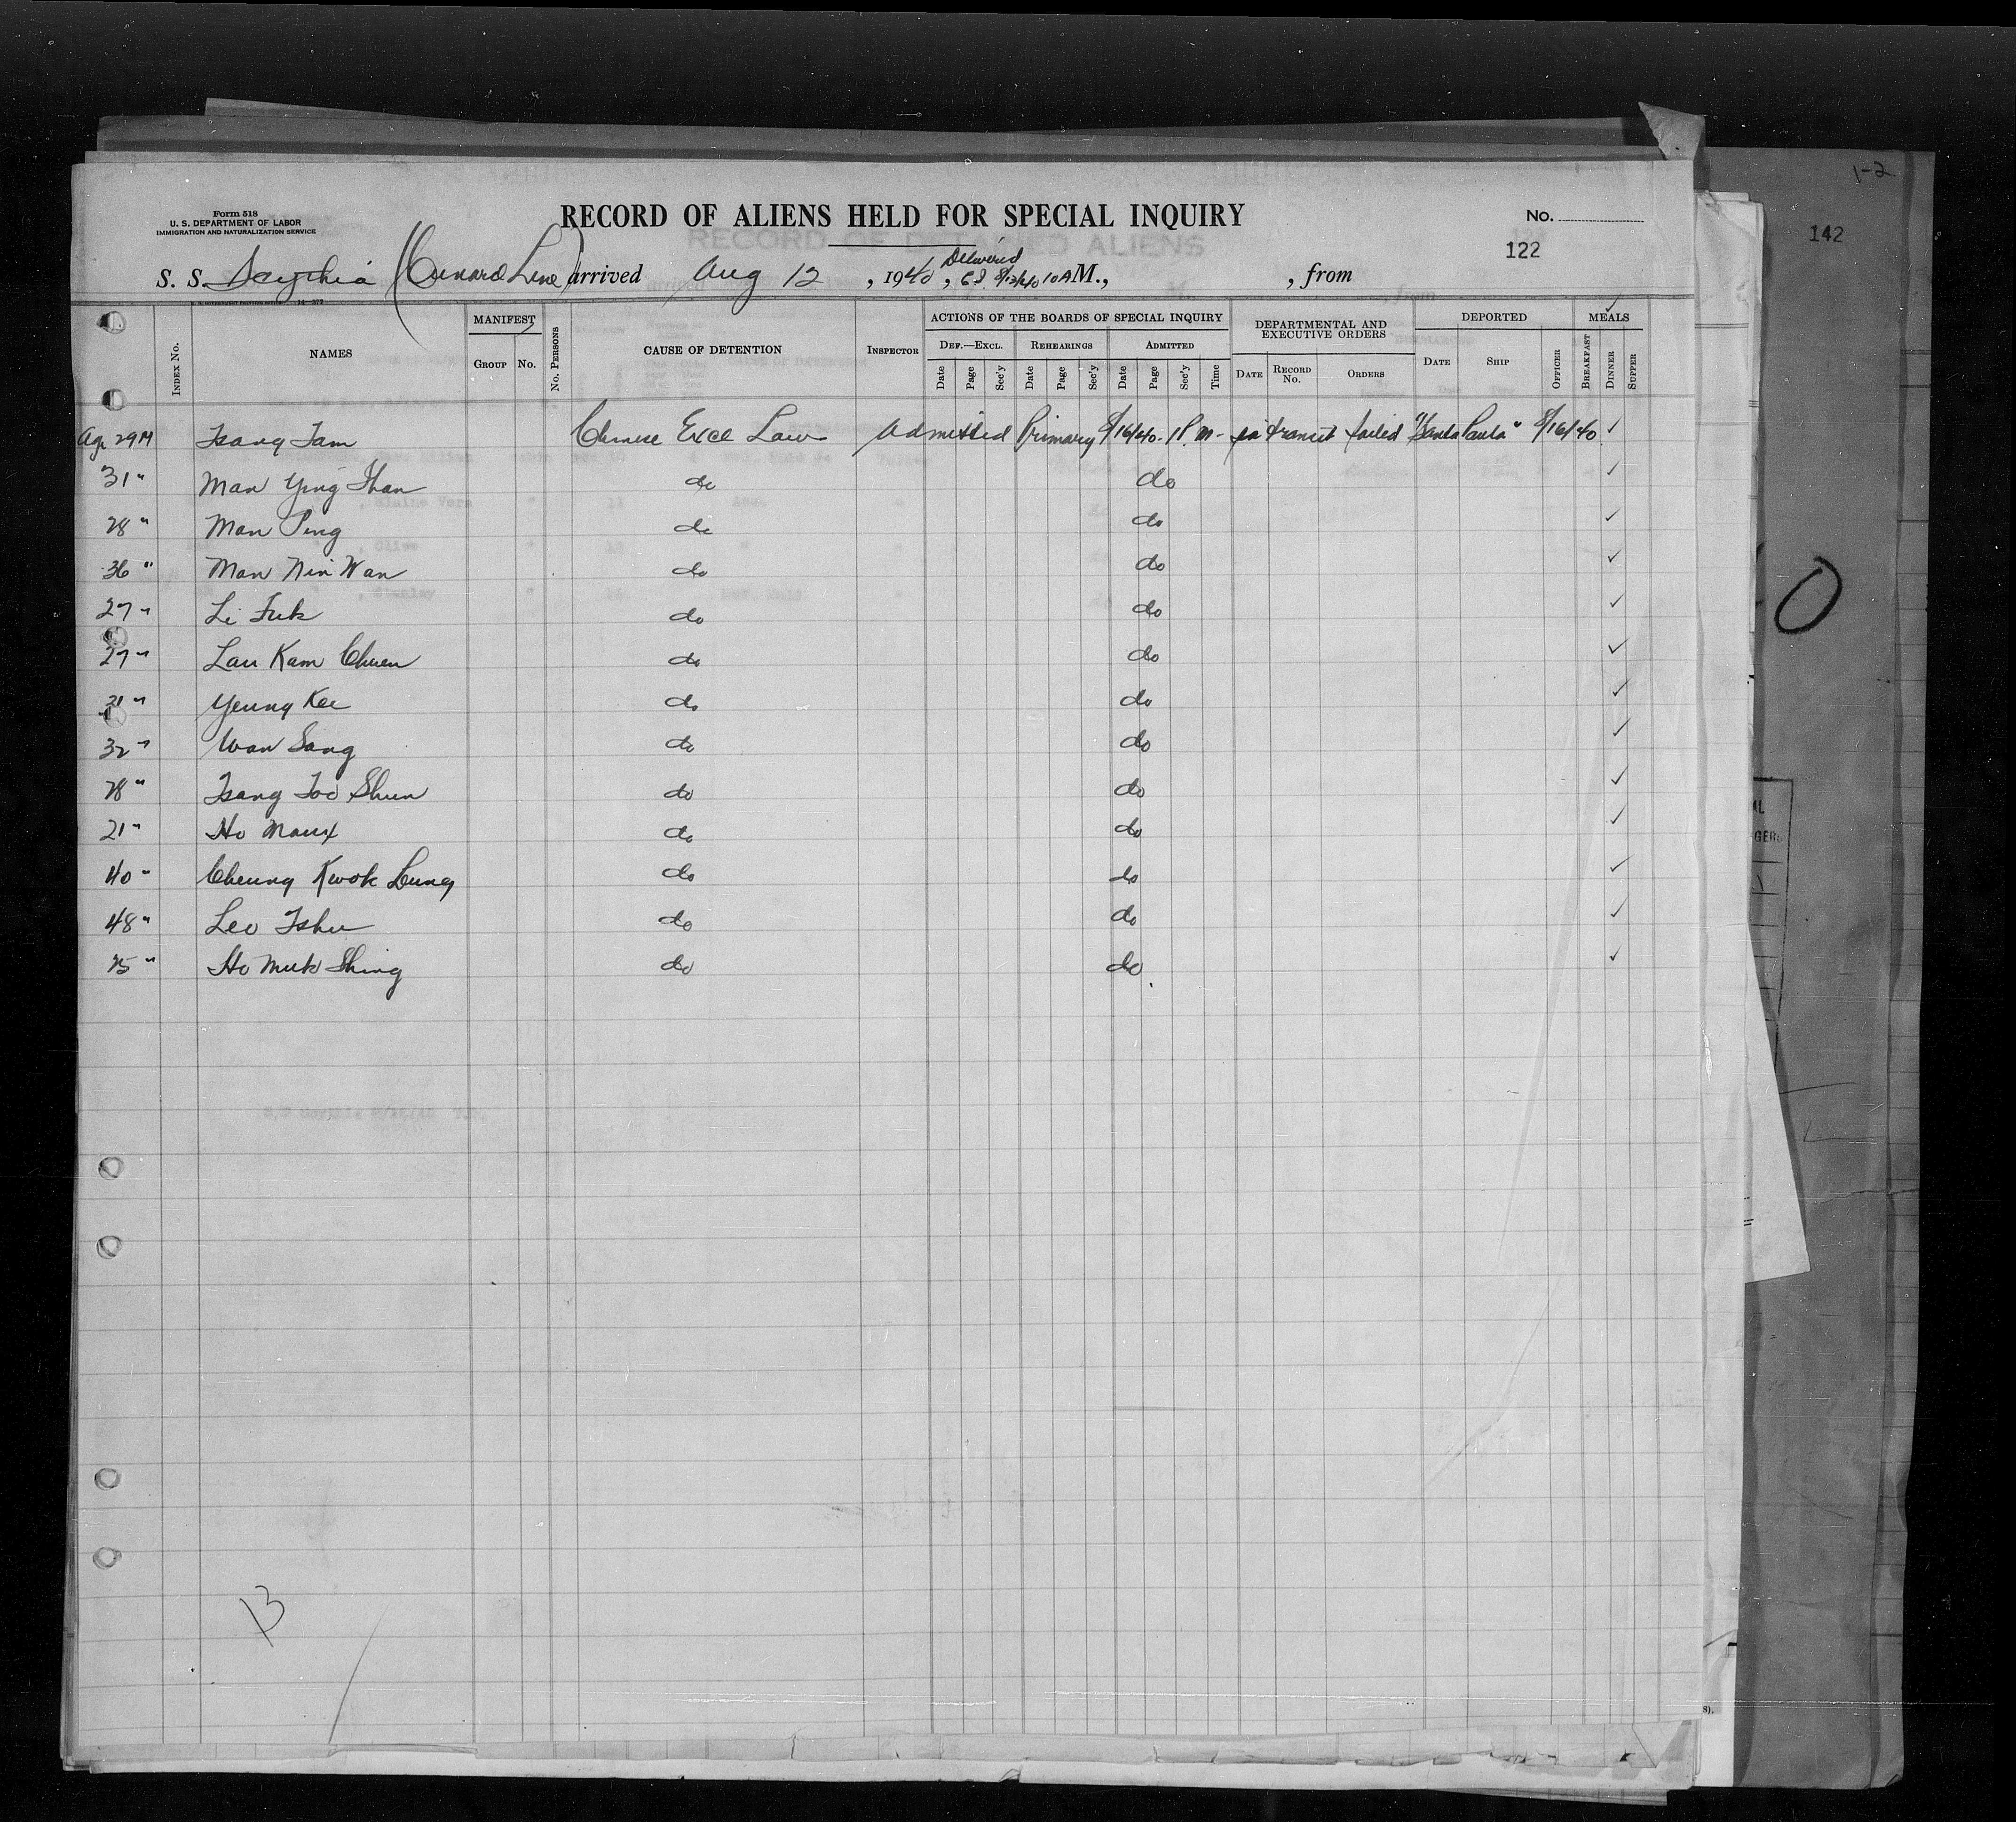 1-2
142
Form 518
U. S. DEPARTMENT OF LABOR
IMMIGRATION AND NATURALIZATION SERVICE
RECORD OF ALIENS HELD FOR SPECIAL INQUIRY
No.
122
S. S. Scythia (Cunard Line) arrived Aug 12, 1940, Delivered 8/12/40 10 A M., , from
INDEX No. NAMES MANIFEST GROUP No. No. PERSONS CAUSE OF DETENTION INSPECTOR ACTIONS OF THE BOARDS OF SPECIAL INQUIRY DEPARTMENTAL AND EXECUTIVE ORDERS DEPORTED MEALS
DEF.—EXCL. REHEARINGS ADMITTED
Date Page Sec'y Date Page Sec'y Date Page Sec'y Time DATE RECORD No. ORDERS DATE SHIP OFFICER BREAKFAST DINNER SUPPER
Age 29 M Tsang Tam Chinese Excl Law Admitted Primary 8/16/40 - 1 P.M. - in transit sailed "Santa Paula" 8/16/40 ✓
31 " Man Ying Than do do ✓
28 " Man Ping do do ✓
36 " Man Nin Wan do do ✓
27 " Li Fuk do do ✓
27 " Lau Kam Chuen do do ✓
31 " Yeung Kee do do ✓
32 " Wan Sang do do ✓
28 " Tsang Too Shun do do ✓
21 " Ho do do ✓
40 " Cheung Kwok Leung do do ✓
48 " Leo Tshu do do ✓
25 " Ho Muk Shing do do ✓
13